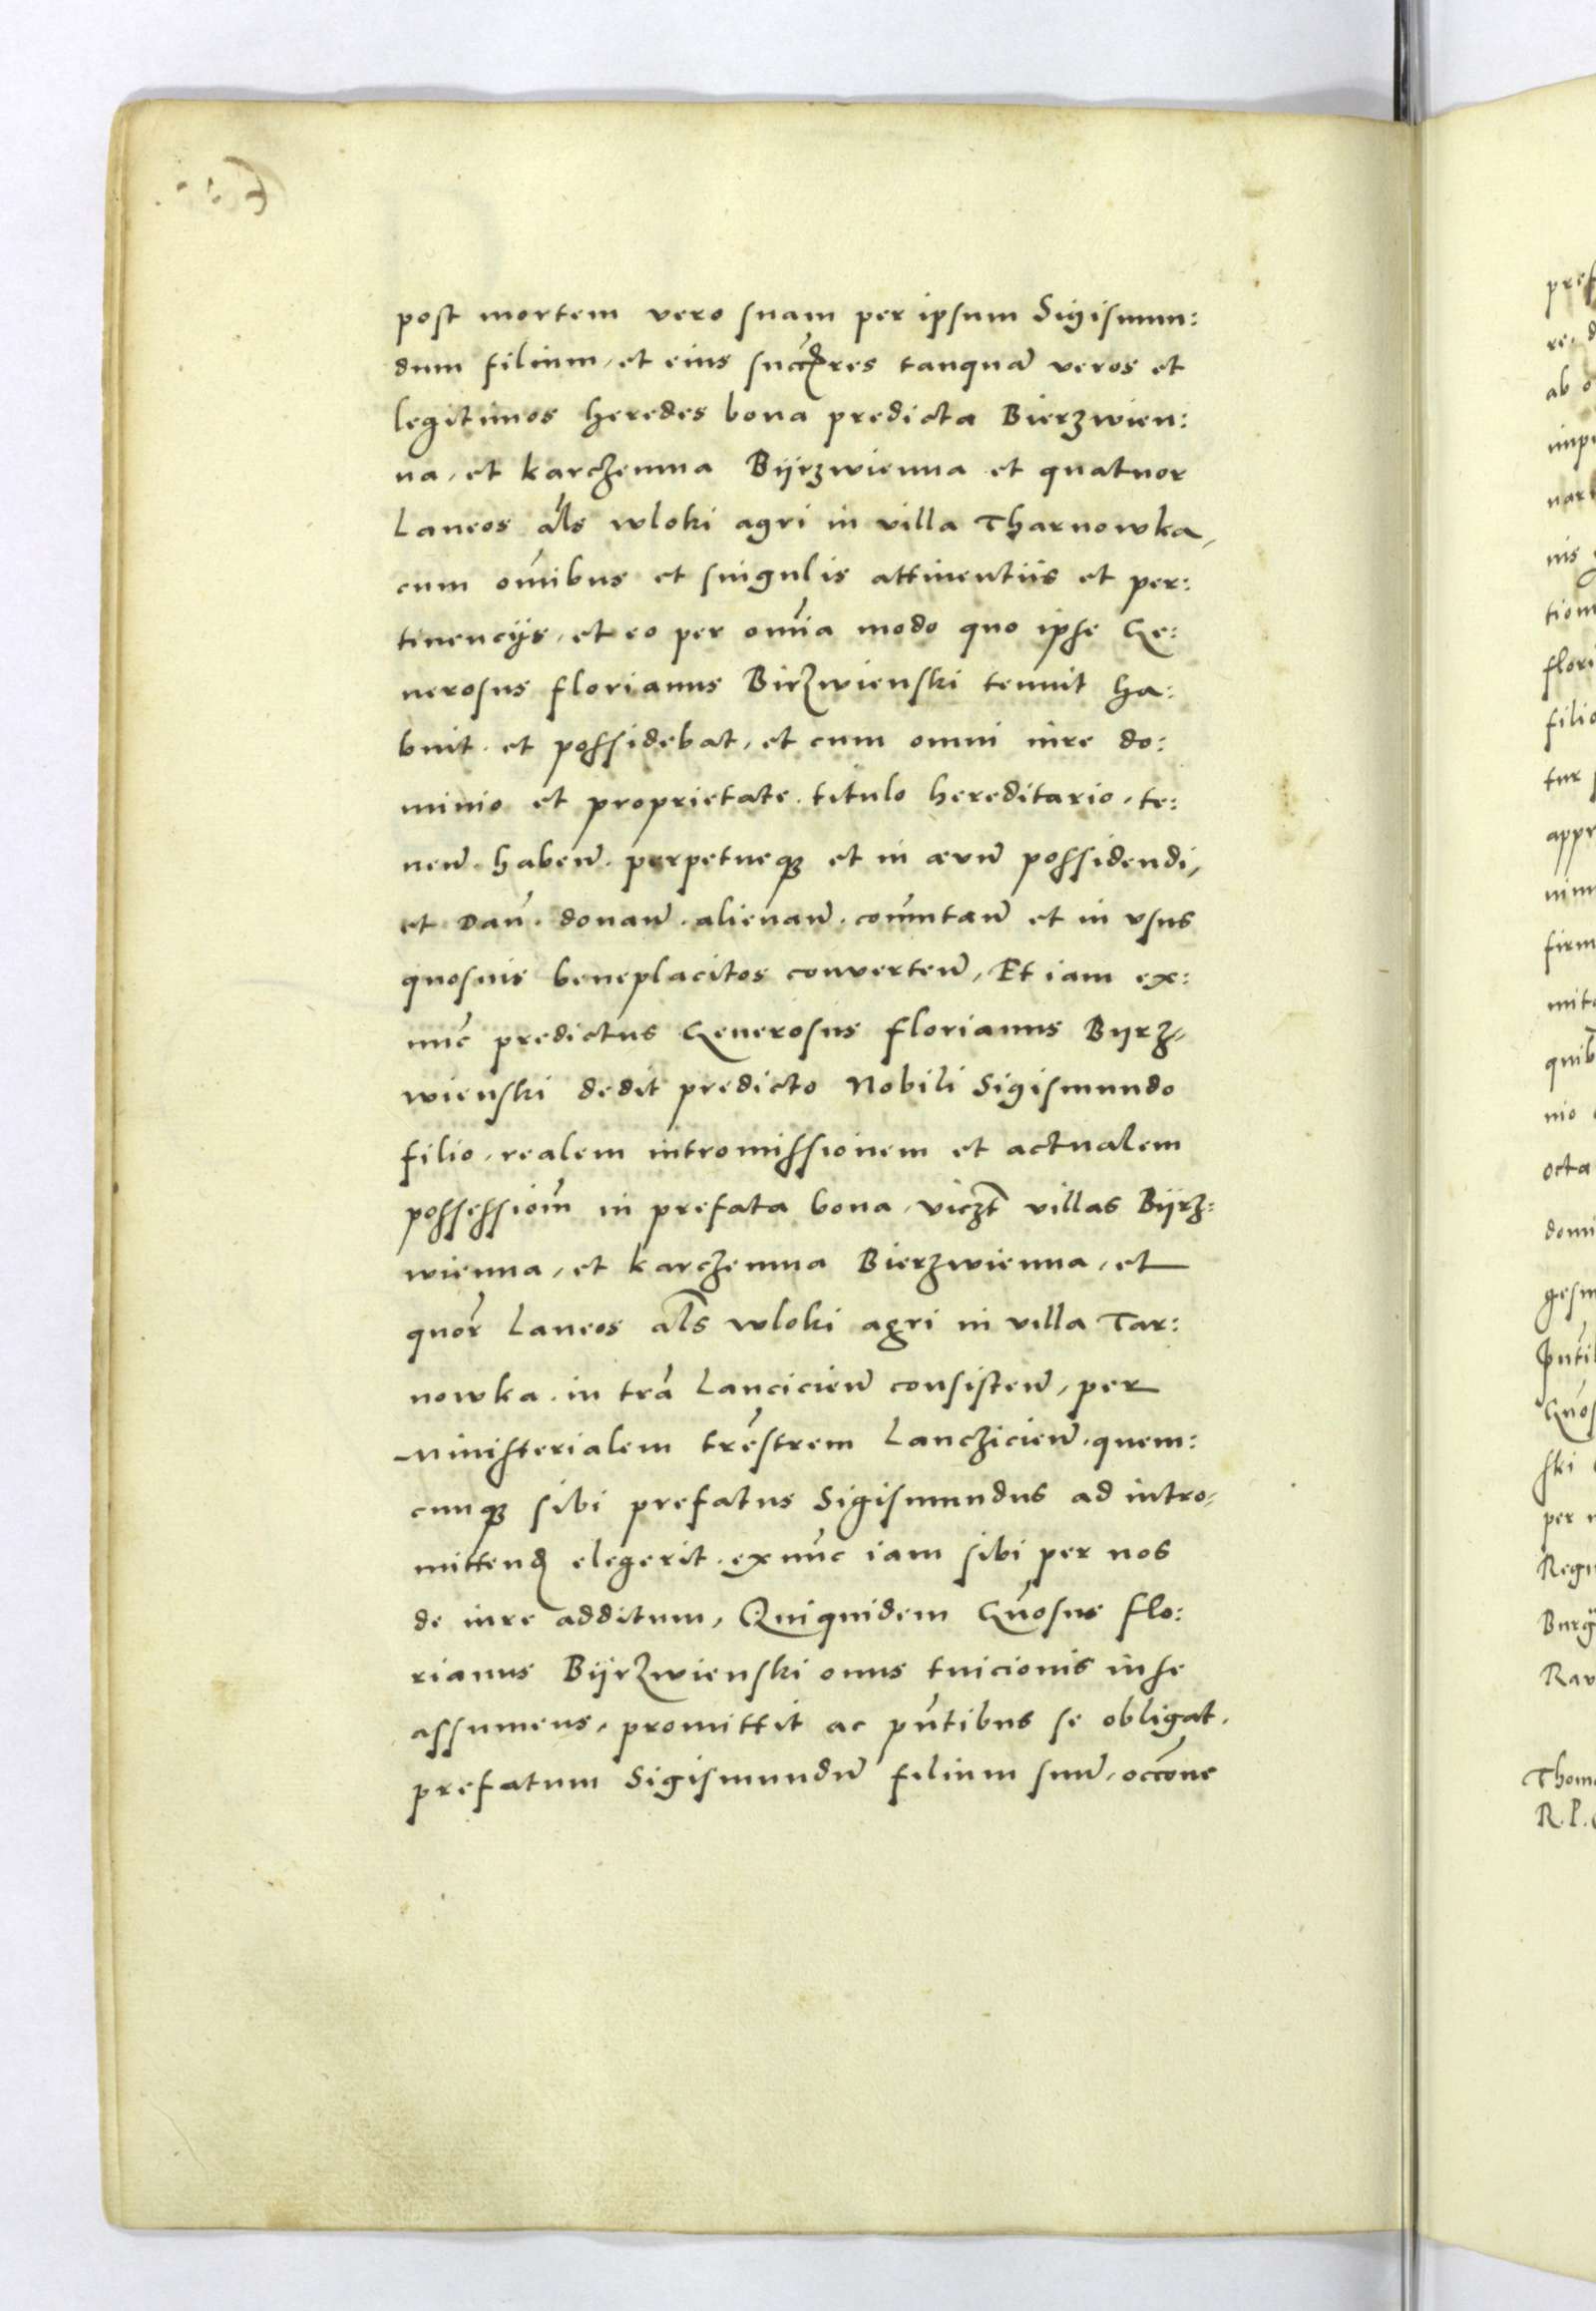 post mortem vero suam per ipsum Sigismun:
dum filium, et eius succ̄res tanquā veros et
legitimos heredes bona predicta Bierzwien:
na, et karczemna Bÿrzwienna et quatuor
Laneos al̄s wloki agri in villa Tharnowka,
cum om̄ibus et singulis attinentiis et per:
tinencÿs, et eo per om̄ia modo quo ipse Ge:
nerosus florianus Birzwienski tenuit ha:
buit. et possidebat, et cum omni iure do:
minio et proprietate. titulo hereditario, te:
nen̄. haben̄. perpetueqꝫ et in ævū possidendi,
et Dan̄. donan̄. alienan̄. com̄utan̄ et in vsus
quosuis beneplacitos converten̄, Et iam ex:
nūc predictus Generosus florianus Byrz=
wienski dedit predicto Nobili Sigismundo
filio, realem intromissionem et actualem
possessiōm in prefata bona, viczt̄ villas Bÿrz:
wienna, et karczemna Bierzwienna, et
quōr Laneos al̄s wloki agri in villa Tar:
nowka. in trā Lancicien̄ consisten̄, per
Ministerialem trēstrem Lanczicien̄. quem:
cunqꝫ sibi prefatus Sigismundus ad intro=
mittenḍ elegerit. ex nūc iam sibi per nos
de iure additum, Quiquidem Gn̄osus Flo:
rianus Bÿrzwienski onus tuicionis in se
assumens, promittit ac pn̄tibus se obligat.
prefatum Sigismundū filium suū, occōne